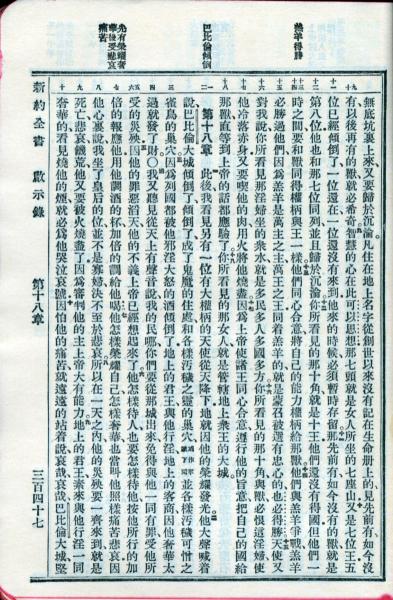 羔羊得勝
巴比倫傾倒
先有榮耀奢
華後受悲哀
痛苦
無底坑裏上來又要歸於沉淪凡住在地上名字從創世以來沒有記在生命册上的見先前有如今沒
有以後再有的獸就必希奇智慧的心在此可以思想那七頭就是女人所坐的七座山又是七位王五
位已經傾倒了一位還在一位還沒有來到他來的時候必須暫時存留那先前有如今沒有的獸就是
第八位他也和那七位同列並且歸於沉淪你所看見的那十角就是十王他們還沒有得國但他們一
時之間要和獸同得權柄與王一樣他們同心合意將自己的能力權柄給那獸他們與羔羊爭戰羔羊
必勝過他們因為羔羊是萬主之主萬王之王同着羔羊的就是蒙召被選有忠心的也必得勝天使又
對我說你所看見那淫婦坐的衆水就是多民多人多國多方你所看見的那十角與獸必恨這淫婦使
他冷落赤身又要喫他的肉用火將他燒盡因為上帝使諸王同心合意遵行他的旨意把自己的國給
那獸直等到上帝的話都應驗了你所看見的那女人就是管轄地上衆王的大城
第十八章 此後我看見另有一位有大權柄的天使從天降下地就因他的榮耀發光他大聲喊着
說巴比倫大城傾倒了傾倒了成了鬼魔的住處和各樣汚穢之靈的巢穴並各樣汚穢可憎之
雀鳥的巢穴因為列國都被他邪淫大怒的酒傾倒了地上的君王與他行淫地上的客商因他奢華太
過就發了財〇我又聽見從天上有聲音說我的民哪你們要從那城出來免得與他一同有罪受他所
受的災殃因他的罪惡滔天他的不義上帝已經想起來了他怎樣待人也要怎樣待他按他所行的加
倍的報應他用他調酒的杯加倍的調給他喝他怎樣榮耀自己怎樣奢華也當叫他照樣痛苦悲哀因
他心裏說我坐了皇后的位並不是寡婦決不至於悲哀所以在一天之內他的災殃要一齊來到就是
死亡悲哀饑荒他又要被火燒盡了因為審判他的主上帝大有能力地上的君王素來與他行淫一同
奢華的看見燒他的煙就必為他哭泣哀號因怕他的痛苦就遠遠的站着說哀哉哀哉巴比倫大城堅
新約全書 啟示錄 第十八章 三百四十七